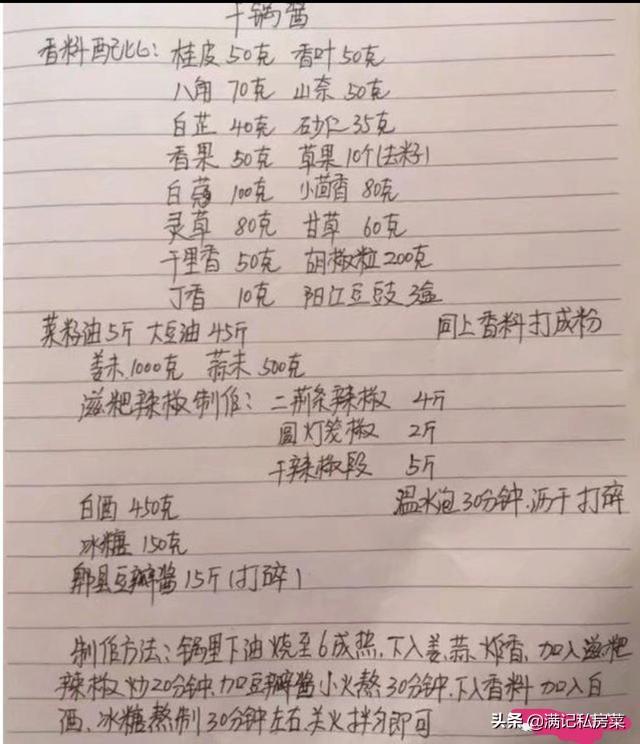 干锅酱
香料配比: 桂皮50克 香叶50克
八角 70克 山奈 50克
白芷 40克 砂仁 35克
香果 50克 草果10个(去籽)
白蔻 100克 小茴香 80克
灵草 80克 甘草 60克
千里香 50克 胡椒粒200克
丁香 10克 阳江豆豉 3盒
菜籽油5斤 大豆油45斤 同上香料打成粉
姜末1000克 蒜末500克
滋粑辣椒制作: 二荆条辣椒 4斤
圆灯笼椒 2斤
干辣椒段 5斤
白酒 450克 温水泡30分钟.沥干打碎
冰糖 150克
郫县豆瓣酱15斤(打碎)
制作方法: 锅里下油烧至6成热.下入姜.蒜.炸香.加入滋粑
辣椒炒20分钟.加豆瓣酱小火熬30分钟.下入香料加入白
酒.冰糖熬制30分钟左右.关火拌匀即可
头条 @满记私房菜